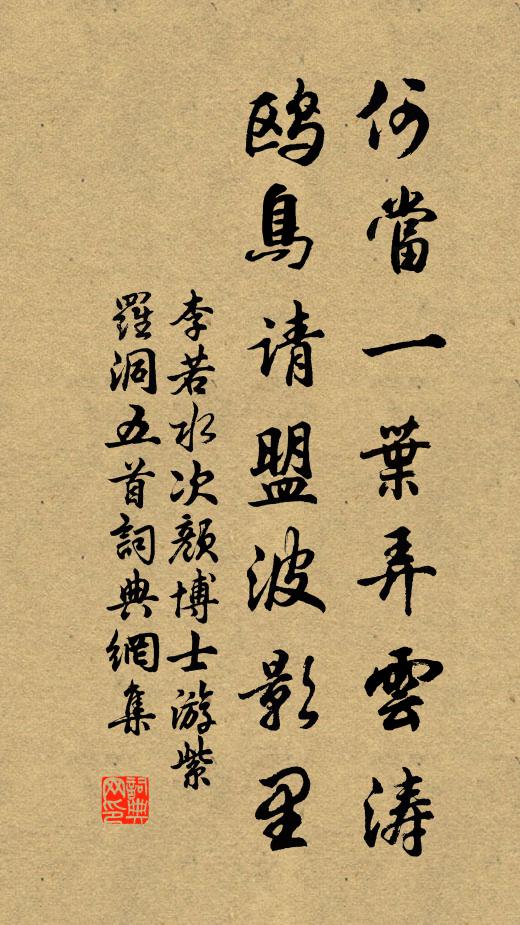 何當一葉弄雲涛
鸥鳥请盟波影里
李若水次颜博士游紫
羅洞五首詞典網集
詞典
网印